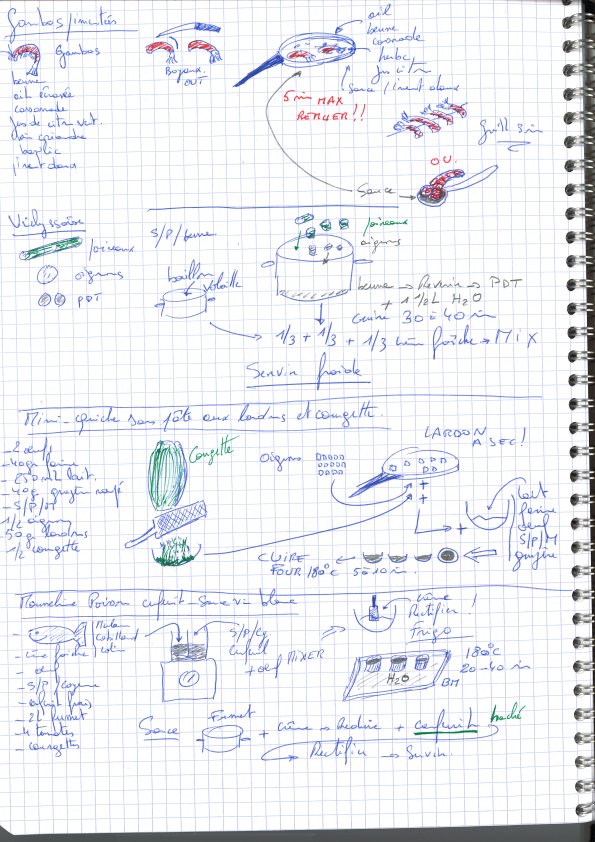 Gambas pimentées
Gambas
beurre
cassonade
basilic
Boyaux
OUT
oil
beurre
cassonade
herbe
jus citr
sauce piment doux
5 min MAX
REMUER!!
Grill 5 min
OU.
Sauce
Vichyssoise
poireaux
oignons
PDT
S/P/beurre.
bouillon
volaille
poireaux
oignons
beurre → Revenir → PDT
+ 1 1/2 L H2O
Cuire 30 à 40 min
1/3 + 1/3 + 1/3 crème fraîche → MIX
Servir froide
Mini-quiche sans pâte aux lardons et courgette.
-2 oeufs
-40gr farine
-250ml lait.
-40g gruyère rapé
-S/P/M
1/2 oignon
50g lardons
1/2 courgette
Courgette
Oignons
LARDON
A SEC!
lait
farine
oeuf
S/P/M
gruyère
CUIRE
FOUR 180°C 5 à 10 min.
Mousseline Poisson cerfeuil - Sauce vin blanc
Merlan
Cabillaud
Colin
- crème fraîche
- oeuf
- S/P/Cayenne
- cerfeuil frais
- 2L fumet
- 4 tomates
- courgettes
S/P/Cay
cerfeuil
+ oeuf MIXER
crème
Rectifier !
Frigo
180°C
20-40 min
H2O
BM
Sauce
Fumet
+ crème → Réduire + cerfeuil haché
Rectifier → Servir.